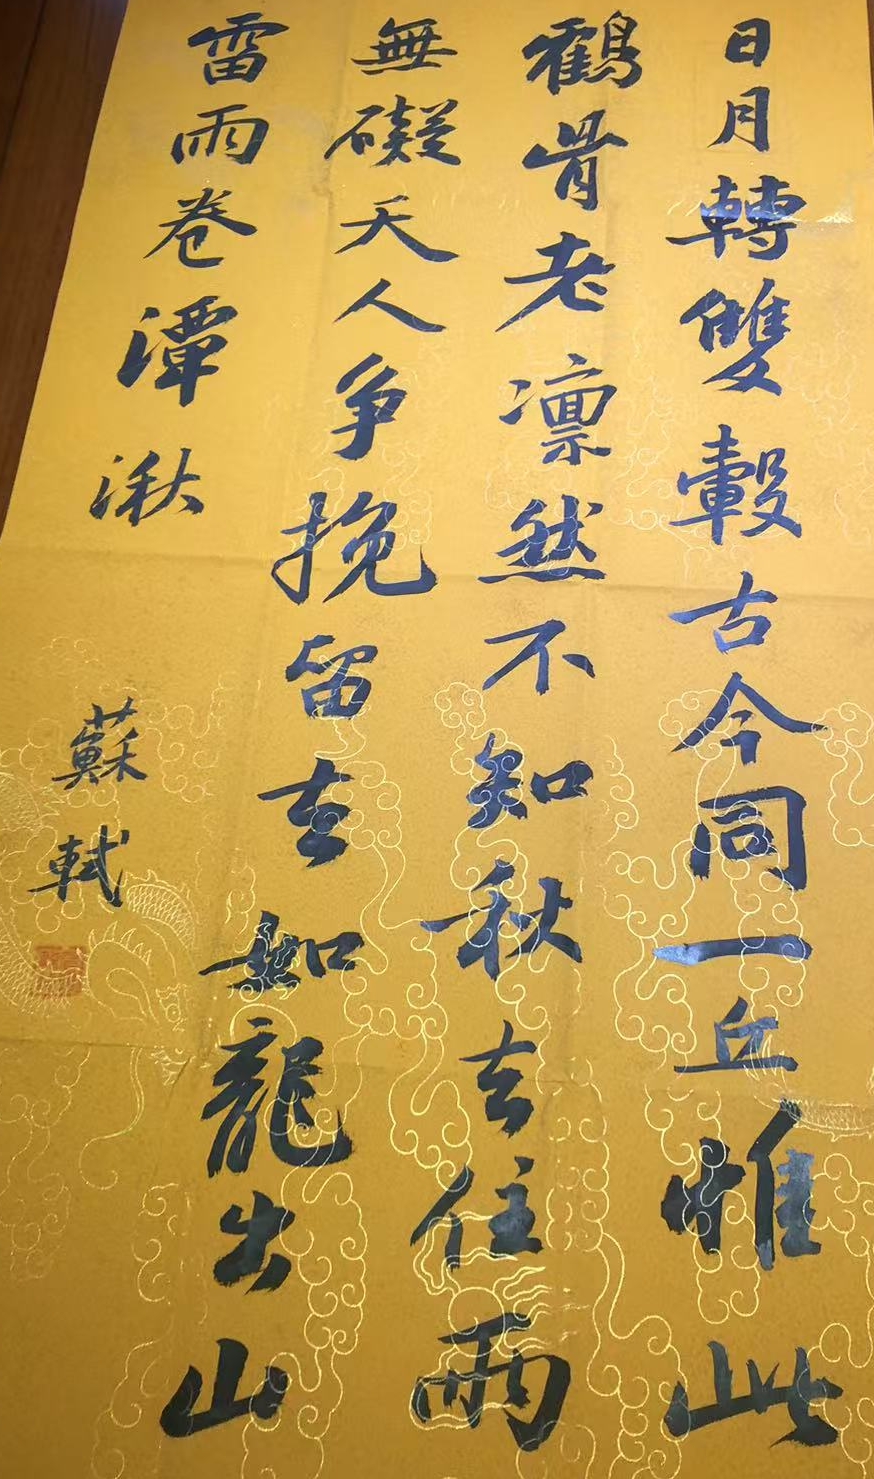 日月轉雙轂古今同一丘惟此
鶴骨老凛然不知秋去住兩
無礙天人争挽留去如龍出山
雷雨卷潭湫
蘇軾